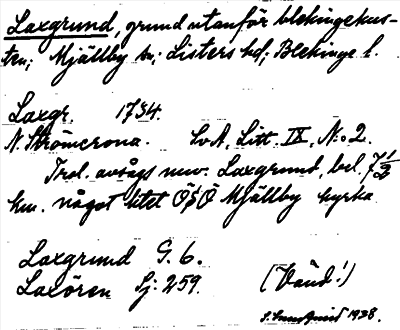 Laxgrund, grund utanför blekingekus-
ten; Mjällby sn; Listers hd; Blekinge l.
Laxgr. 1734.
N. Strömcrona. SvA, Litt. IX, N:o 2.
Trol. avsågs nuv. Laxgrund, bel. 7 1/2
km. något litet ÖSÖ Mjällby kyrka.
Laxgrund G. 6.
Laxören Sj: 259. (Vänd!)
1938.